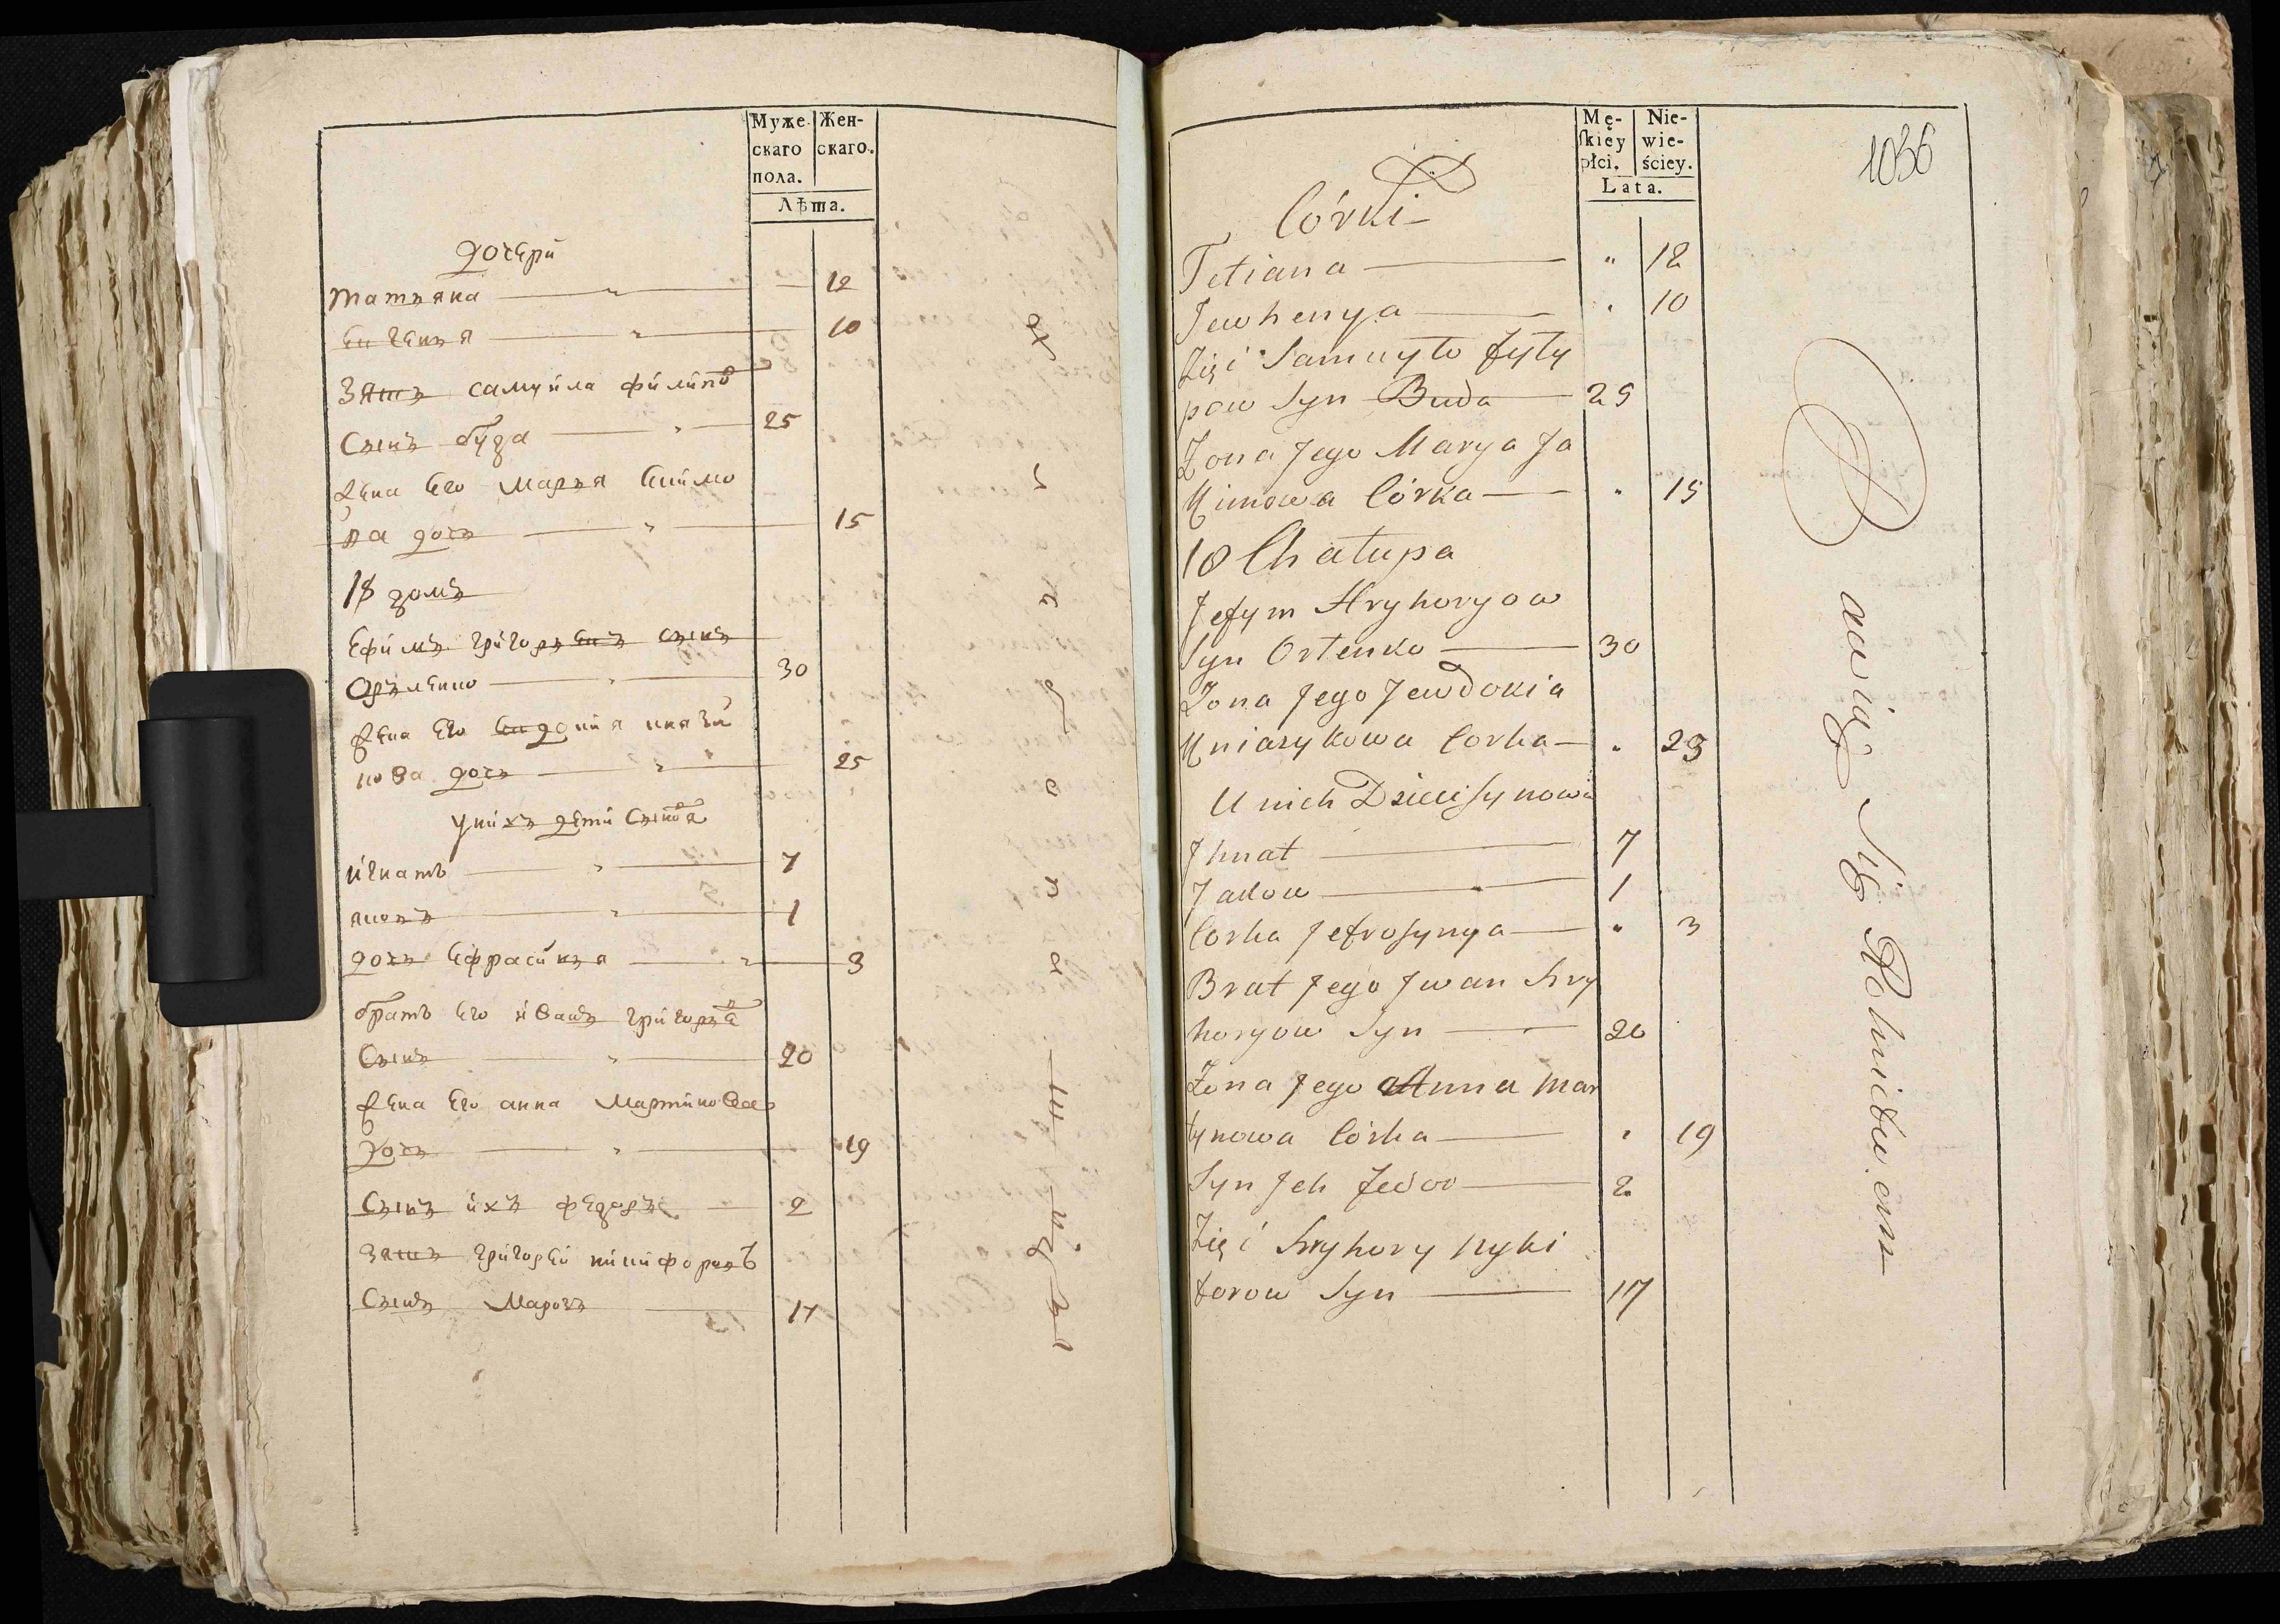 Муже-
скаго
пола.
Жен-
скаго.
Лѣта.
дочери
татьяна — " — 12
евгения — " — 10
Зять самуила филипо
сынъ буда — " — 25
жена его марья екимо
ва дочь — " — 15
18 домъ
ефимъ григорьевъ сынъ
— " — 30
жена его евдокия княжи
кова дочь — " — 25
у нихъ дети сыновя
игнатъ — " — 7
яковъ — " — 1
дочь ефрасинья — " — 3
братъ его иванъ григорье
сынъ — " — 20
жена его анна мартинова
дочь — " — 19
сынъ ихъ федоръ — 2
зять григорей никифоровъ
сынъ — 17
1036
Mę-
skiey
płci.
Nie-
wie-
ściey.
Lata.
Córki
Tetiana — " 12
Jewhenya — " 10
Zięć Samuyło Fyły
pow Syn Buda — 25
Żona Jego Marya Ja
kimowa Córka — " 15
18 Chałupa
Jefym Hryhoryow
Syn — 30
Żona Jego Jewdokia
Kniazykowa Corka — " 25
U nich Dzieci Synowie
Jhnat — 7
Jakow — 1
Corka Jefrosynya — " 3
Brat Jego Jwan Hry
horyow Syn — 20
Żona Jego Anna Mar
tynowa Córka — " 19
Syn Jch Fedor — 2
Zięć Hryhory Nyki
forow Syn — 17
Bawią Się Rolnictwem